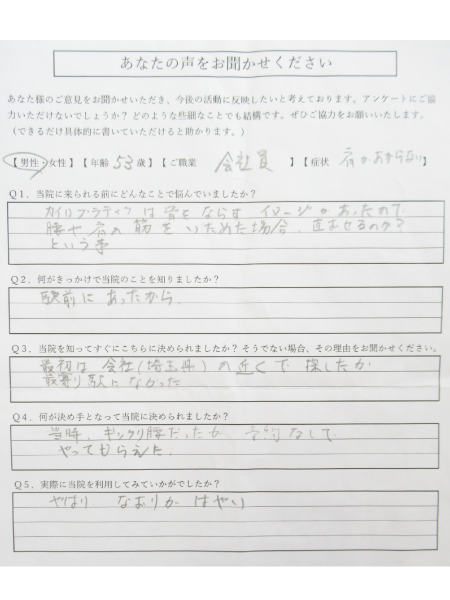 あなたの声をお聞かせください
あなた様のご意見をお聞かせいただき、今後の活動に反映したいと考えております。アンケートにご協
力いただけないでしょうか？どのような些細なことでも結構です。ぜひご協力をお願いいたします。
（できるだけ具体的に書いていただけると助かります。）
【男性・女性】【年齢 53歳】【ご職業 会社員 】【症状 肩があがらない】
Q1．当院に来られる前にどんなことで悩んでいましたか？
カイロプラティクは骨をならす イメージがあったので
腰や肩の筋をいためた場合、直せるのか？
という事
Q2．何がきっかけで当院のことを知りましたか？
駅前にあったから
Q3．当院を知ってすぐにこちらに決められましたか？そうでない場合、その理由をお聞かせください。
最初は会社(埼玉県)の近くで探したが
最寄り駅になかった
Q4．何が決め手となって当院に決められましたか？
当時、ギックリ腰だったが 予約なしで
やってもらえた.
Q5．実際に当院を利用してみていかがでしたか？
やはり なおりが はやい